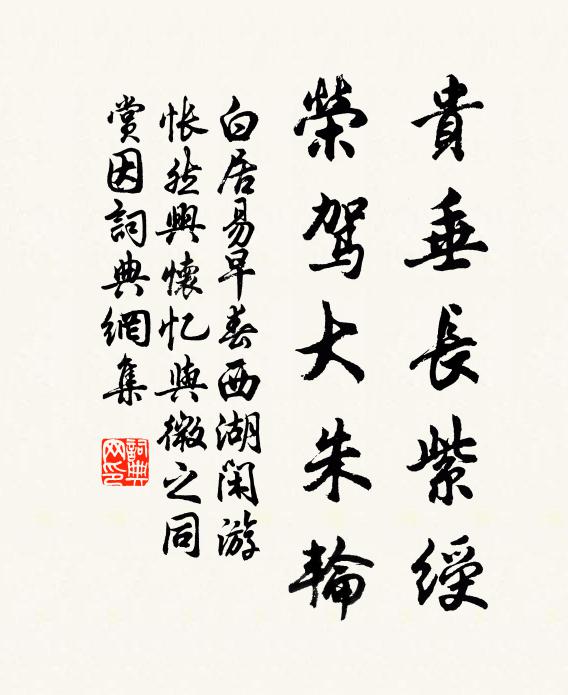 貴垂長紫綬
榮駕大朱輪
白居易早春西湖闲游
怅然興懷忆與微之同
賞因詞典網集
詞典网印